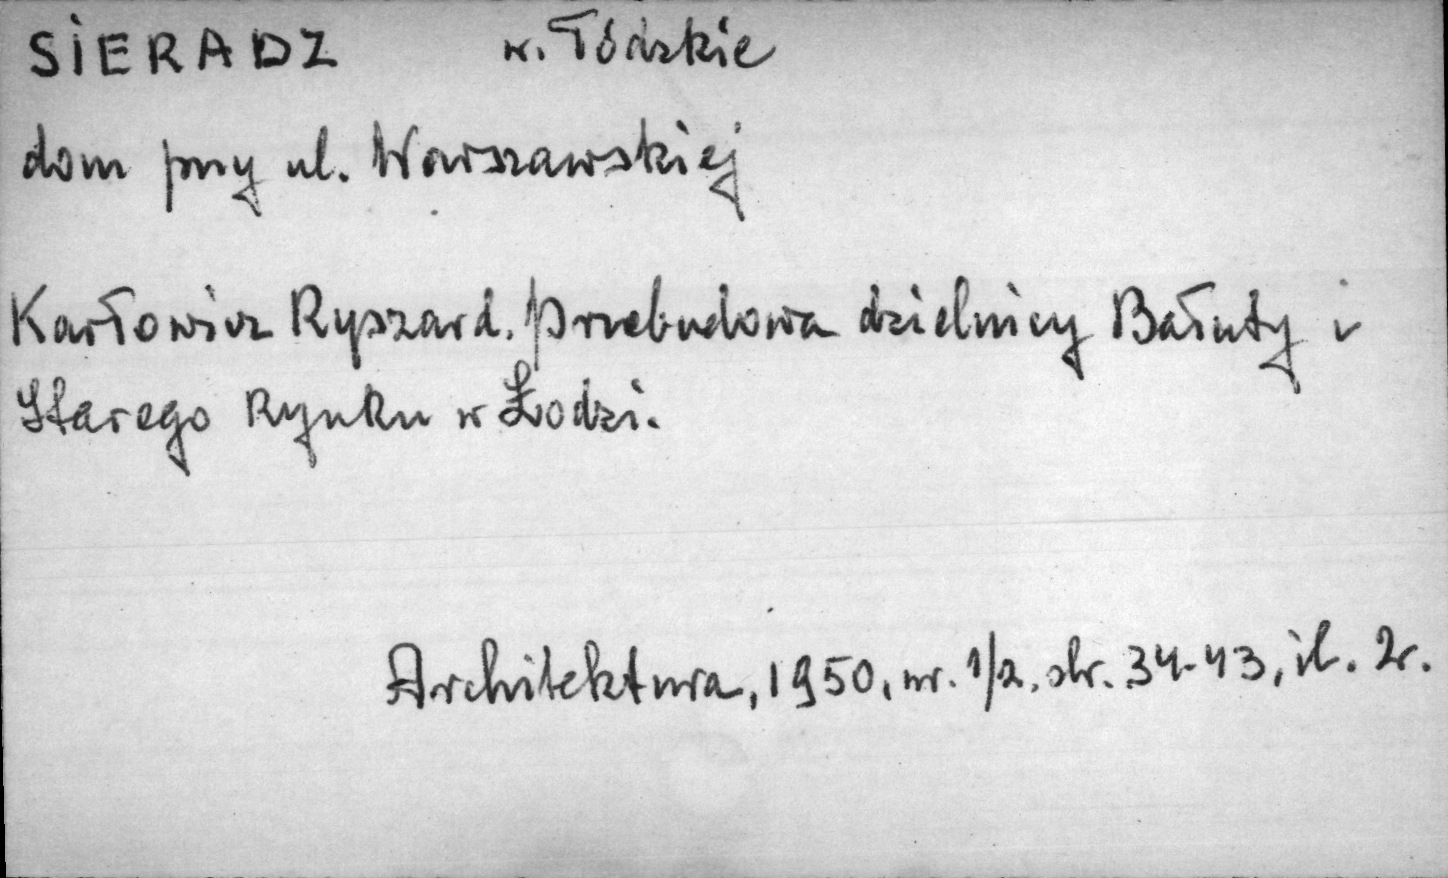 SIERADZ w. łódzkie
dom przy ul. Warszawskiej
Karłowicz Ryszard. Przebudowa dzielnicy Bałuty i
Starego Rynku w Łodzi.
Architektura, 1950, nr. 1/2, str. 34-43, il. 2r.